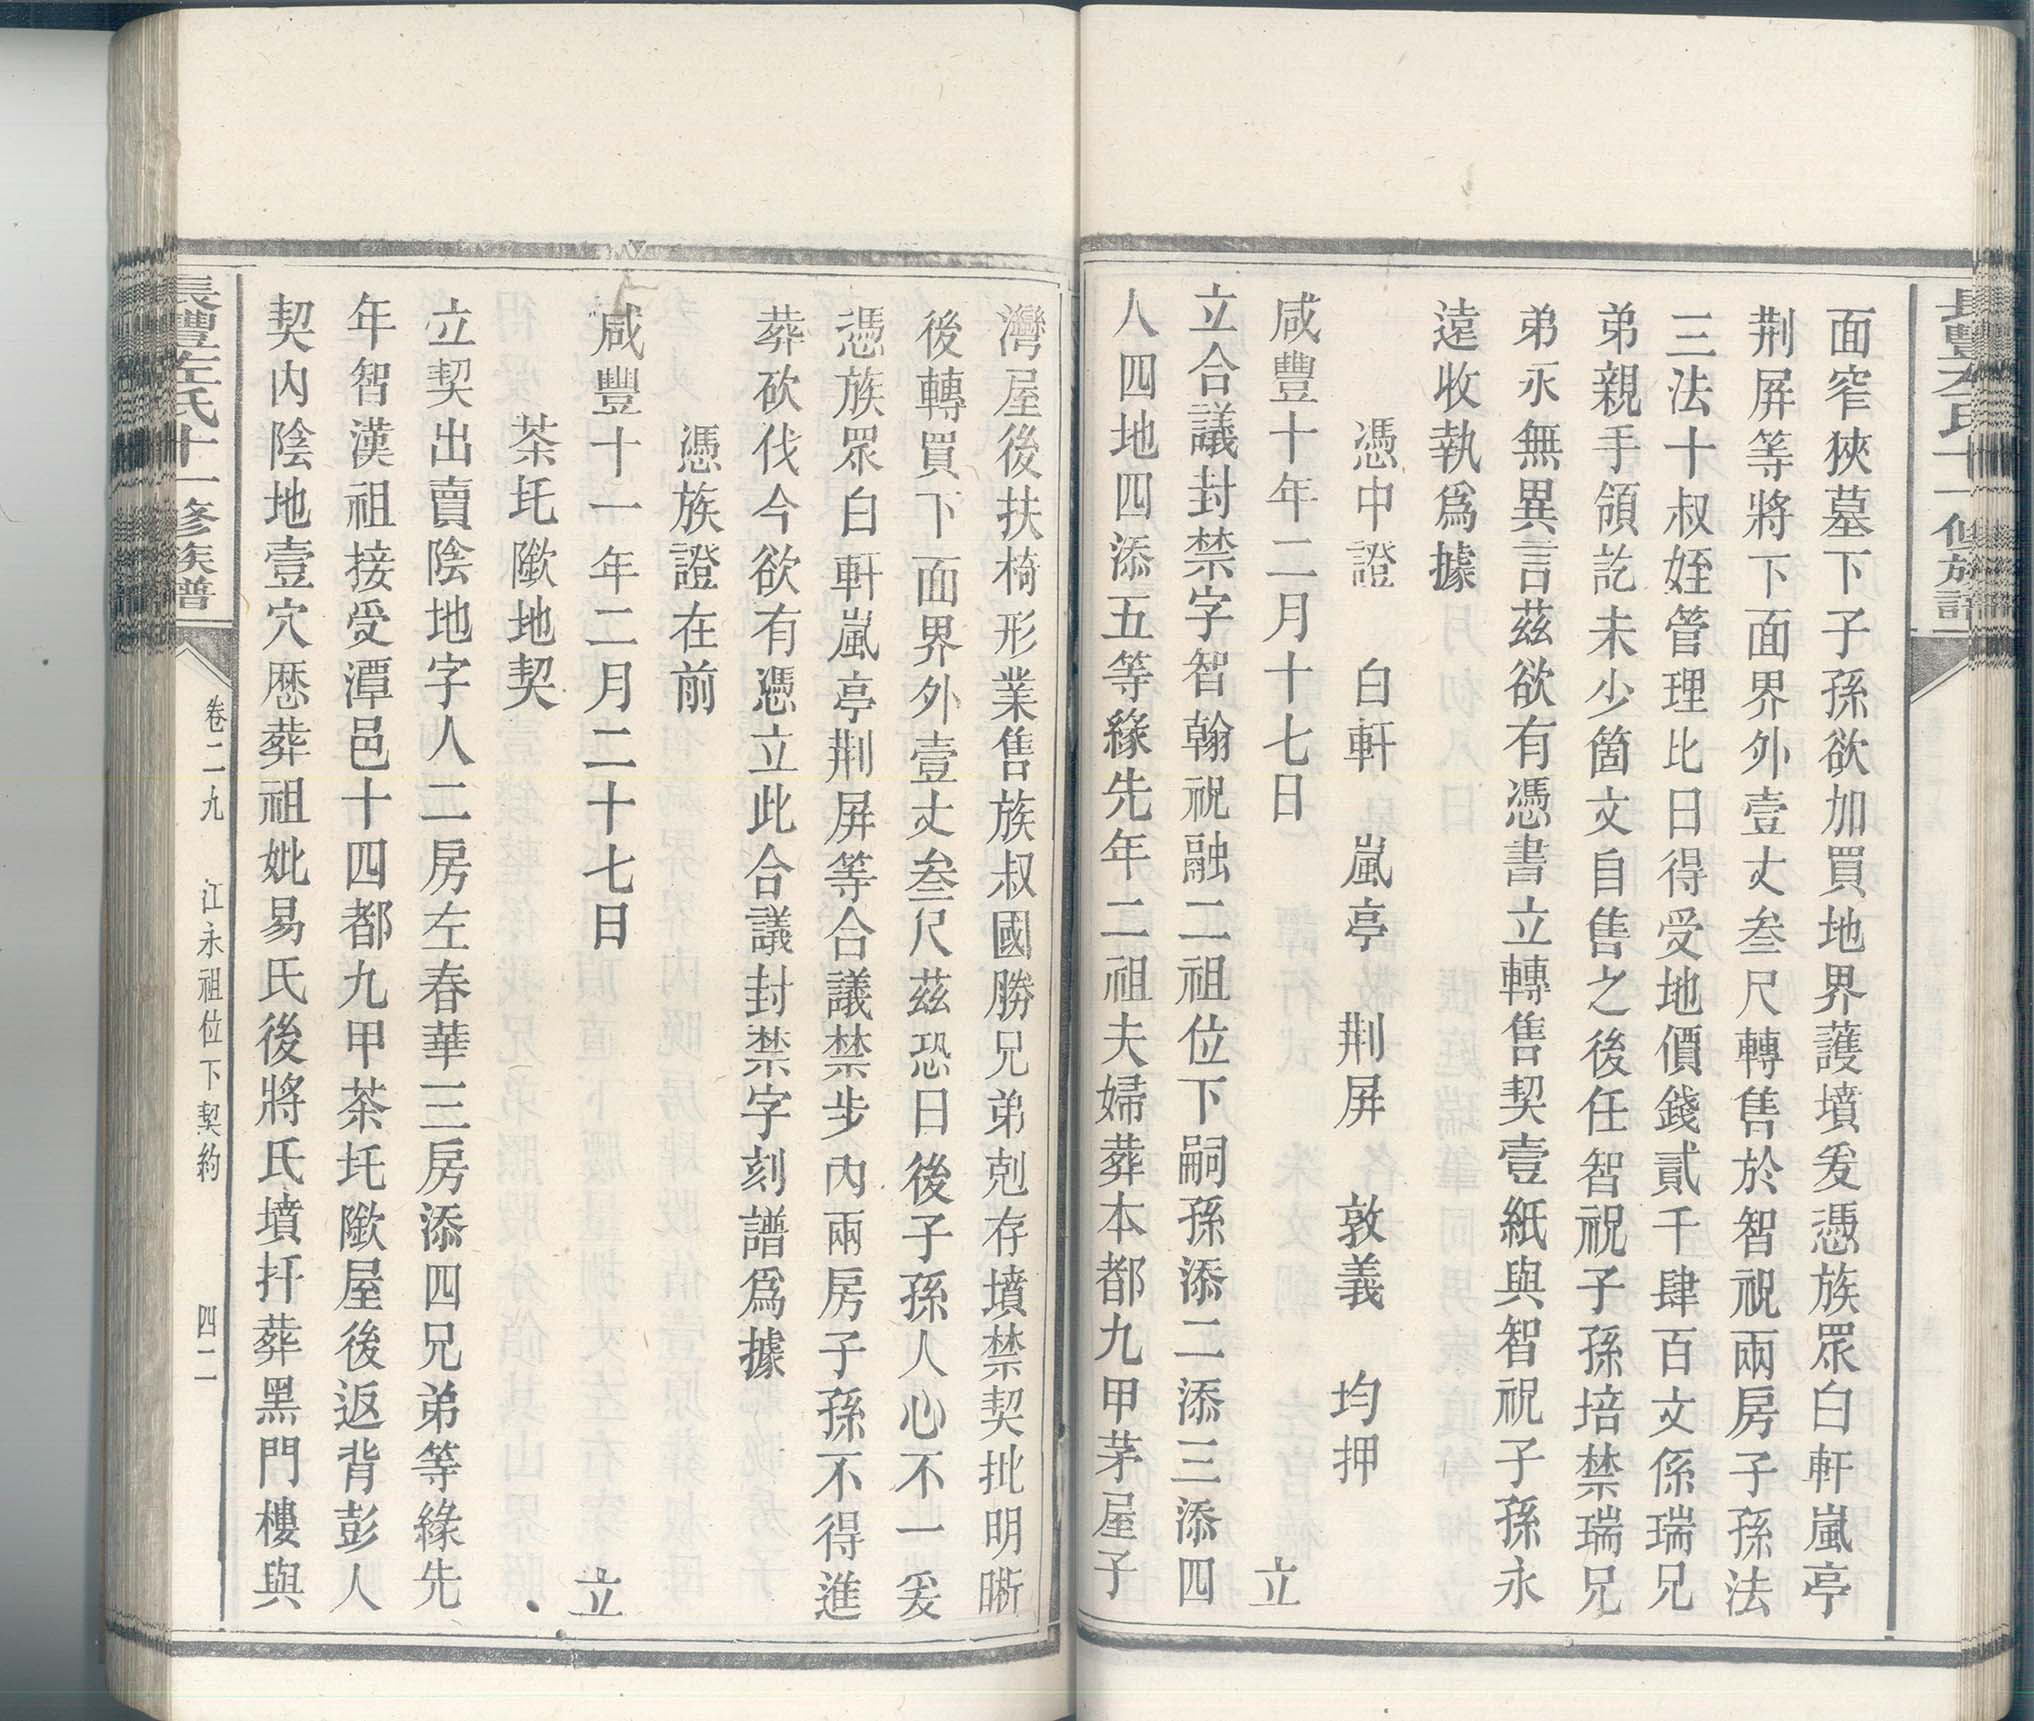 面窄狹墓下子孫欲加買地界護墳爰憑族眾白軒嵐亭
荆屏等將下面界外壹丈叄尺轉售於智祝兩房子孫法
三法十叔姪管理比日得受地價錢貳千肆百文係瑞兄
弟親手領訖未少箇文自售之後任智祝子孫培禁瑞兄
弟永無異言茲欲有憑書立轉售契壹紙與智祝子孫永
遠收執爲據
憑中證　白軒　嵐亭　荆屏　敦義　均押
咸豐十年二月十七日　立
立合議封禁字智翰祝融二祖位下嗣孫添二添三添四
人四地四添五等緣先年二祖夫婦葬本都九甲茅屋子
灣屋後扶椅形業售族叔國勝兄弟剋存墳禁契批明晰
後轉買下面界外壹丈叄尺茲恐日後子孫人心不一爰
憑族眾白軒嵐亭荆屏等合議禁步內兩房子孫不得進
葬砍伐今欲有憑立此合議封禁字刻譜爲據
憑族證在前
咸豐十一年二月二十七日　立
茶圫隞地契
立契出賣陰地字人二房左春華三房添四兄弟等緣先
年智漢祖接受潭邑十四都九甲茶圫隞屋後返背彭人
契內陰地壹穴厯葬祖妣易氏後將氏墳扦葬黑門樓與
長豐左氏十一修族譜
卷二九　江永祖位下契約　四二